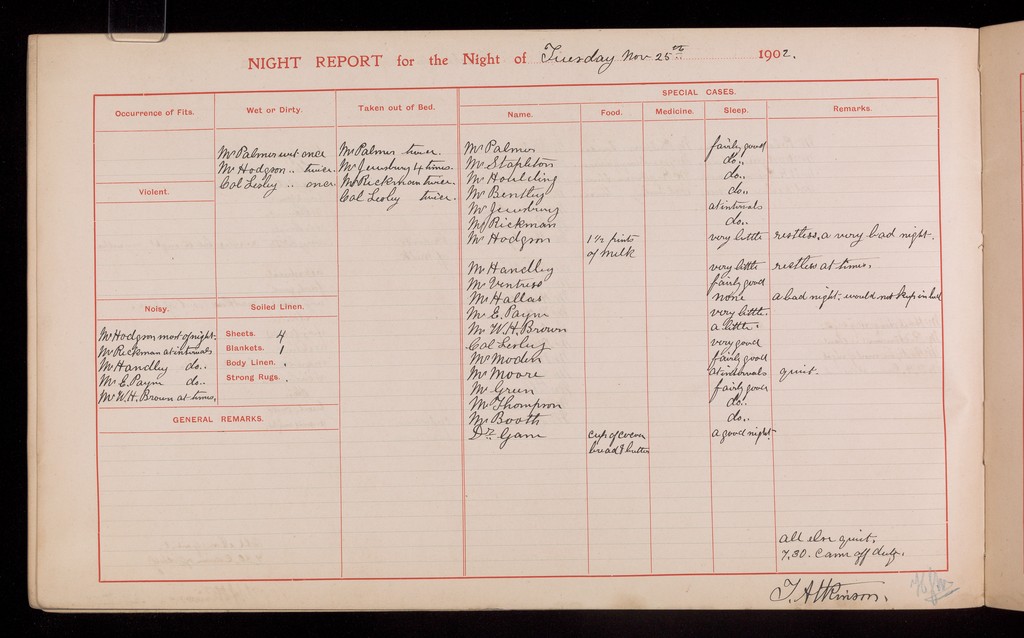 NIGHT REPORT for the Night of Tuesday Nov 25th 1902.
Occurrence of Fits.
Wet or Dirty.
Taken out of Bed.
SPECIAL CASES.
Name. Food. Medicine. Sleep. Remarks.
Mr Palmer wet once
Mr Hodgson " twice.
Col Lesley " once.
Mr Palmer twice.
Mr Jewsbury 4 times.
Mr Rickman twice.
Col Lesley twice.
Violent.
Noisy.
Mr Hodgson most of night.
Mr Rickman at intervals
Mr Handley do..
Mr E. Payne do..
Mr W.H. Brown at times.
Soiled Linen.
Sheets. 4
Blankets. 1
Body Linen. ,
Strong Rugs. ,
GENERAL REMARKS.
Mr Palmer fairly good
Mr Stapleton do..
Mr Houlding do..
Mr Bentley do..
Mr Jewsbury at intervals
Mr Rickman do..
Mr Hodgson 1½ pints very little restless, a very bad night.
of milk
Mr Handley very little restless at times.
Mr Ventress fairly good
Mr Hallas none a bad night, would not keep in bed
Mr E. Payne very little.
Mr W.H. Brown a little.
Col Lesley very good
Mr Moden fairly good
Mr Moore at intervals quiet.
Mr Green fairly good
Mr Thompson do..
Mr Booth do..
Dr Gane cup of cocoa a good night.
bread & butter
all else quiet.
7.30. Came off duty.
T. Atkinson.